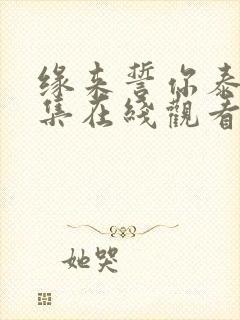 缘来誓你泰
集在綫觀看
她哭